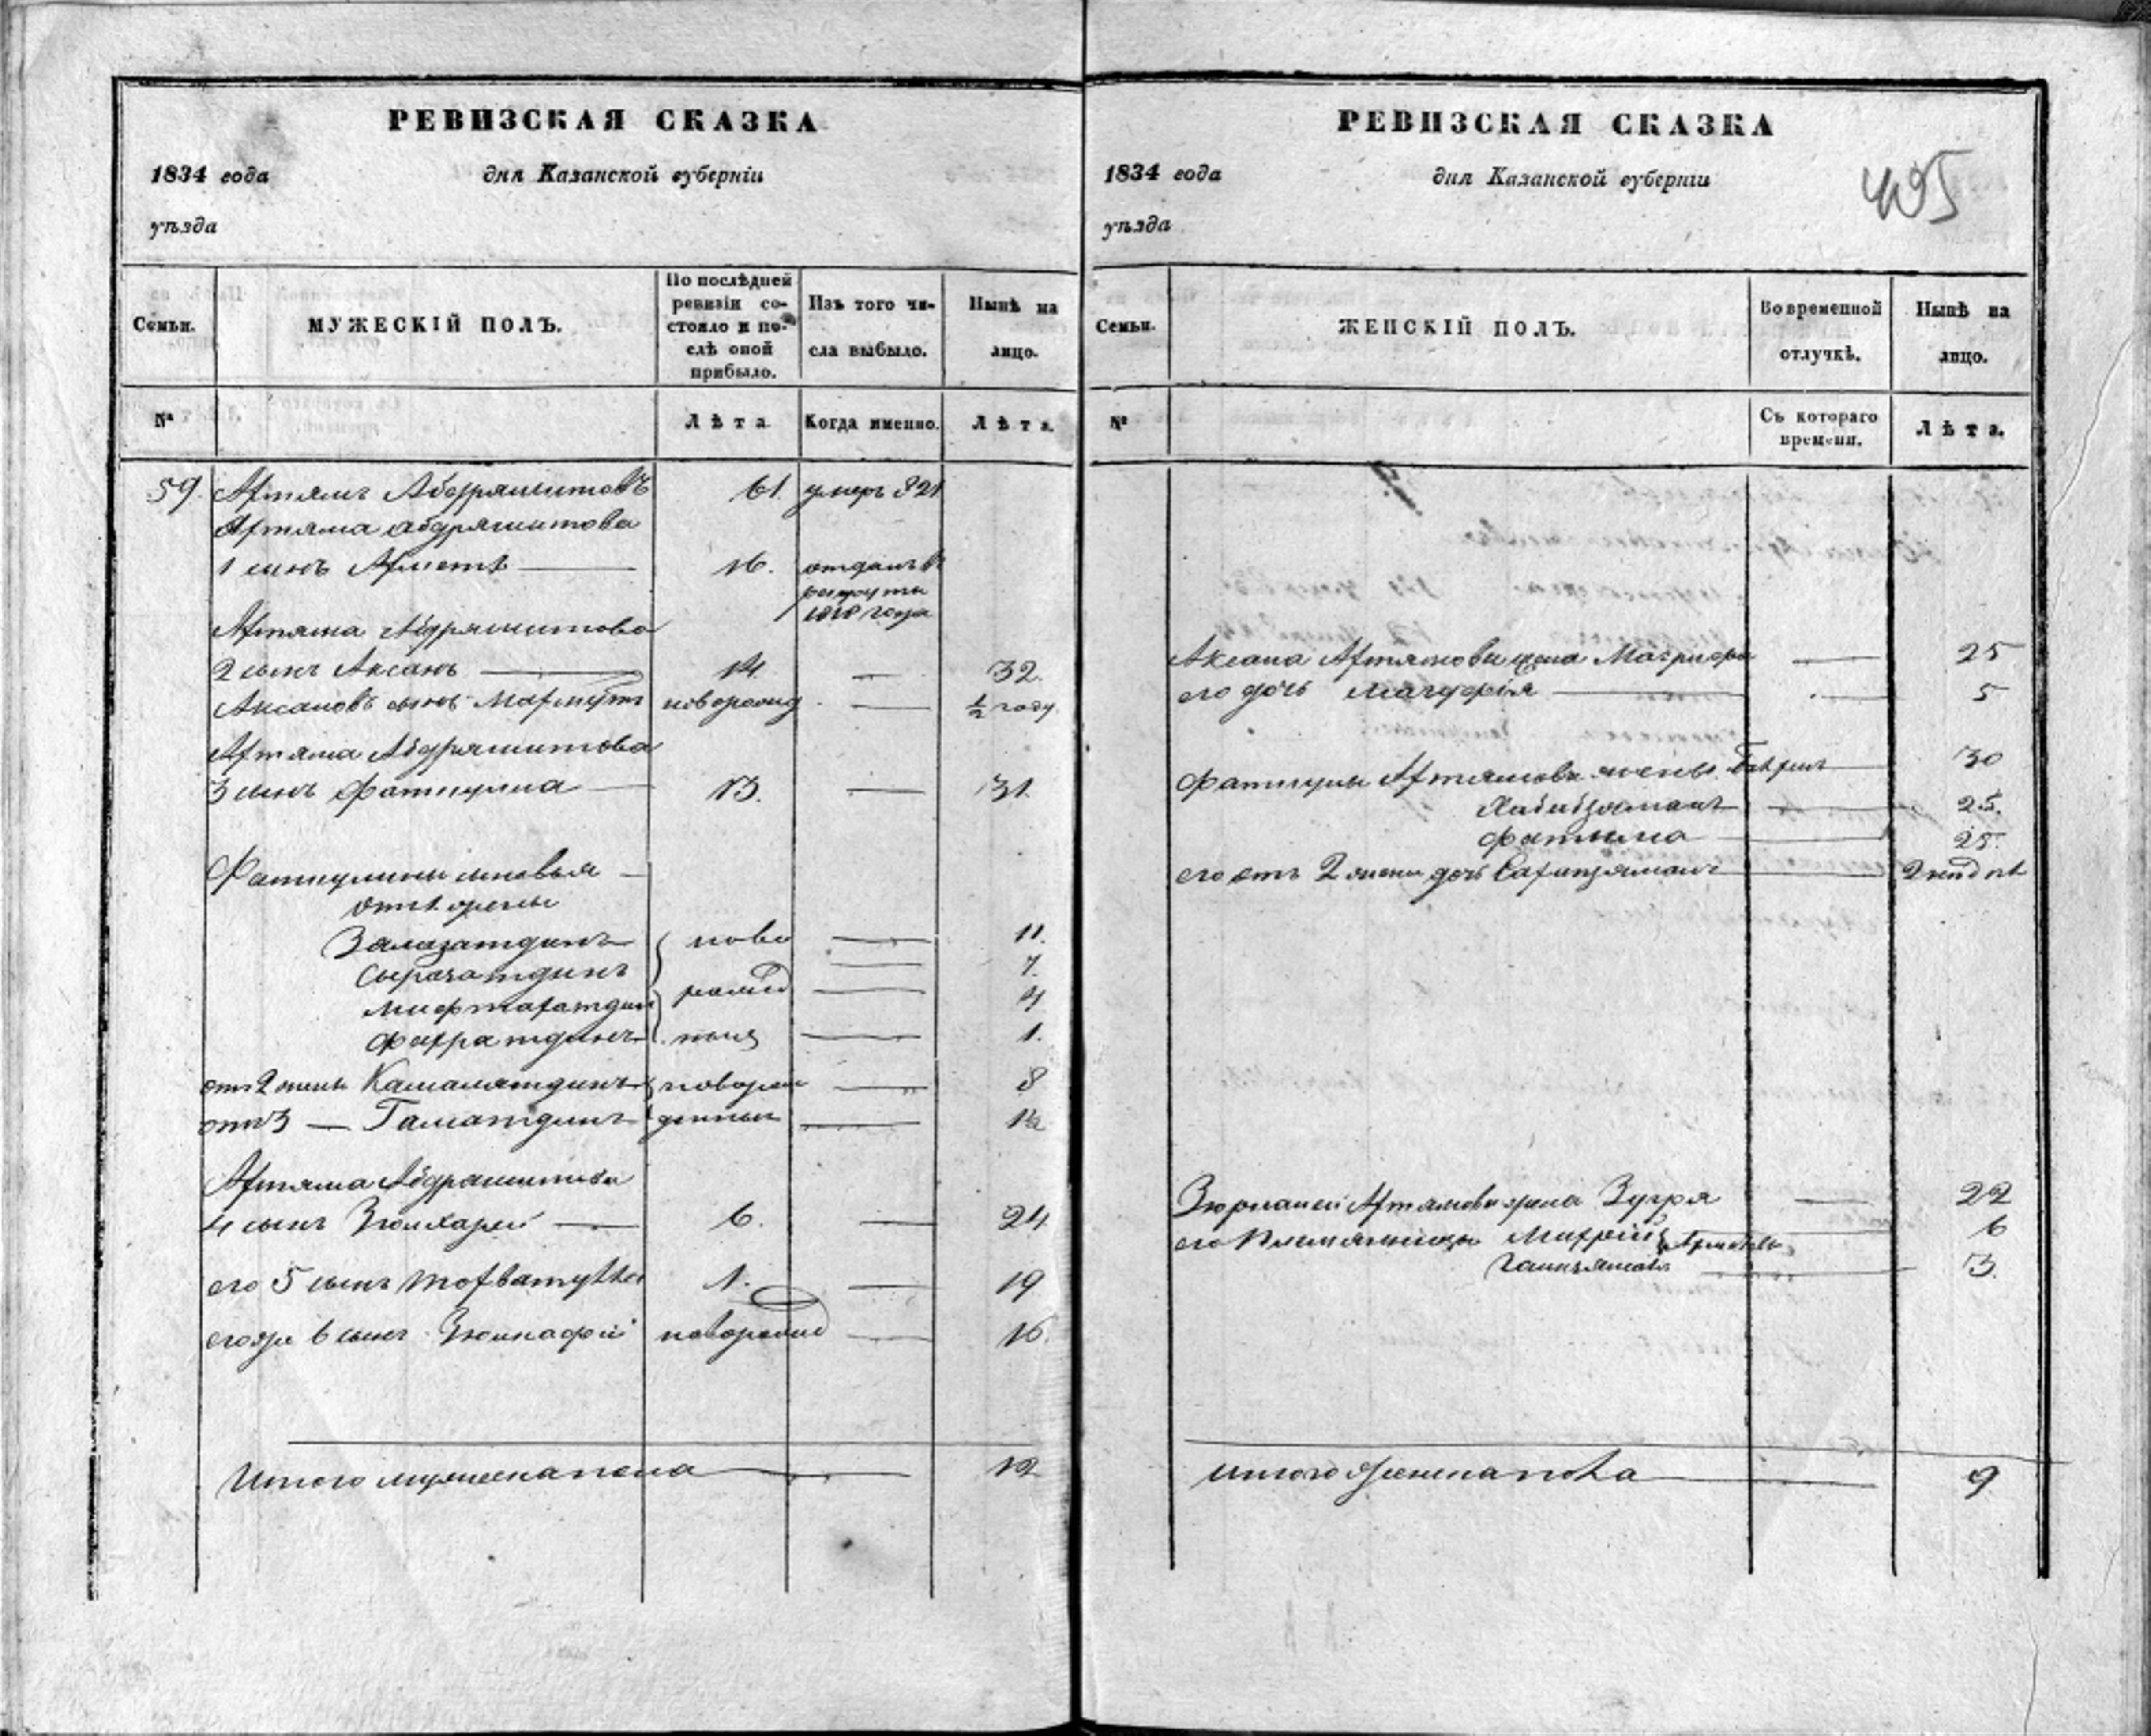 РЕВИЗСКАЯ СКАЗКА
1834 года дня Казанской губерніи
уѣзда
Семьи.
МУЖЕСКІЙ ПОЛЪ.
По послѣдней
ревизіи со-
стояло и по-
слѣ оной
прибыло.
Изъ того чи-
сла выбыло.
Нынѣ на
лицо.
№
Лѣта
Когда именно.
Лѣта.
59. Ахтямъ Абдряшитовъ 61 умеръ 821
Ахтяма Абдряшитова
1 сынъ Ахметъ 16. отданъ въ
рекруты
1818 года
Ахтяма Абдряшитова
2 сынъ Аксанъ 14 — 32.
Аксановъ сынъ Махмутъ новорожд — ½ году
Ахтяма Абдряшитова
3 сынъ Фаткулла 13. — 31.
Фаткуллины сыновья
отъ 1 жены
Залязатдинъ ново — 11.
Сыразатдинъ — 7.
Мифтахатдин рожд — 4
Фахратдинъ ныя — 1.
отъ 2 жены Камалятдинъ новорож — 8
отъ 3 — Гаматдинъ денныи — 1½
Ахтяма Абдрашитова
4 сынъ 6. — 24
его 5 сынъ 1. — 19
его же 6 сынъ новорожд — 16.
Итого мужеска пола — 12
РЕВИЗСКАЯ СКАЗКА
1834 года дня Казанской губерніи
уѣзда
495
Семьи.
ЖЕНСКІЙ ПОЛЪ.
Во временной
отлучкѣ.
Нынѣ на
лицо.
№
Съ котораго
времени.
Лѣта.
Аксана Ахтямова жена — 25
его дочь — 5
Фаткулы Ахтямова жены 30
Хабибзяманъ — 25.
Фатыма — 25.
его отъ 2 жены дочь Сафизяманъ — 2 недѣл
Ахтямова жена Зугря — 22
его племянницы 6
3.
итого женска пола — 9